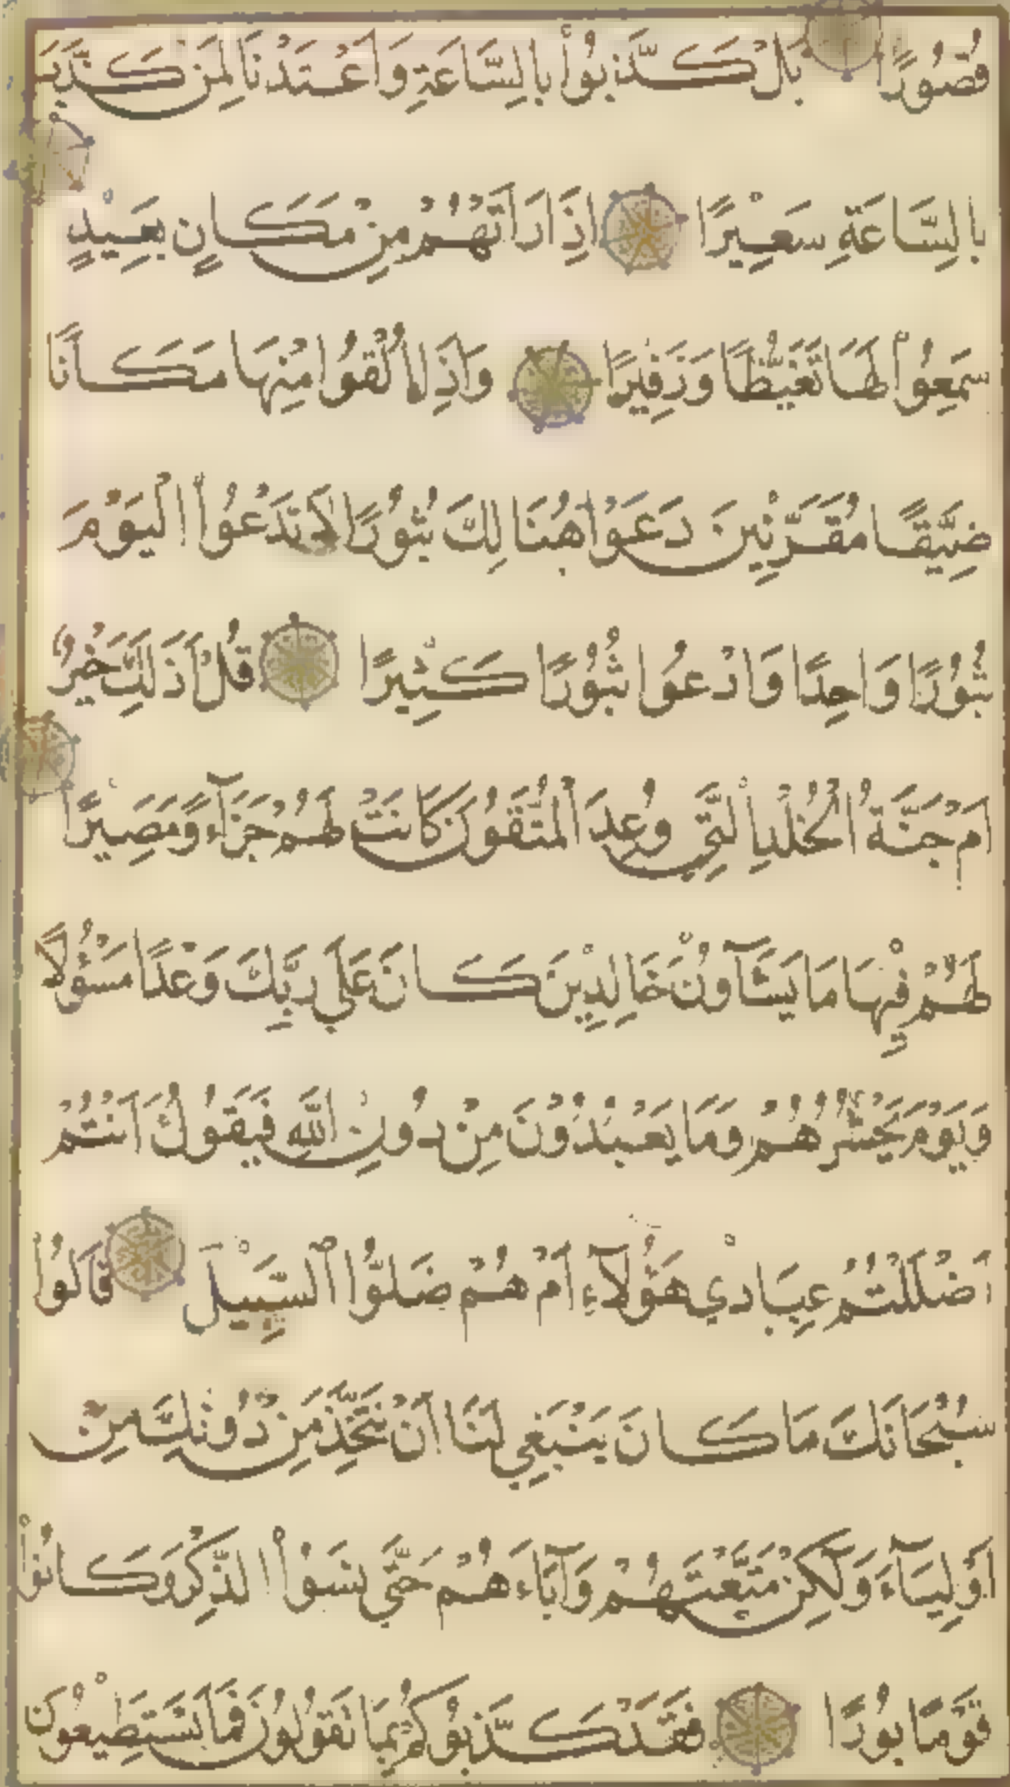 قُصُورًا بَلْ كَذَّبُواْ بِالسَّاعَةِ وَاَعْتَدْنَا لِمَنْ كَذَّبَ
بِالسَّاعَةِ سَعِيْرًا اِذَا رَاَتْهُمْ مِنْ مَكَانٍ بَعِيْدٍ
سَمِعُواْ لَهَا تَغَيُّظًا وَزَفِيْرًا وَاِذَا اُلْقُوا مِنْهَا مَكَانًا
ضَيِّقًا مُقَرَّنِيْنَ دَعَوْا هُنَالِكَ ثُبُوْرًا لَا تَدْعُواْ الْيَوْمَ
ثُبُوْرًا وَاحِدًا وَادْعُوا ثُبُوْرًا كَثِيْرًا قُلْ اَذَلِكَ خَيْرٌ
اَمْ جَنَّةُ الْخُلْدِ الَّتِي وُعِدَ الْمُتَّقُوْنَ كَانَتْ لَهُمْ جَزَآءً وَمَصِيْرًا
لَهُمْ فِيْهَا مَا يَشَآؤُنَ خَالِدِيْنَ كَانَ عَلَى رَبِّكَ وَعْدًا مَسْؤُلًا
وَيَوْمَ يَحْشُرُهُمْ وَمَا يَعْبُدُوْنَ مِنْ دُوْنِ اللَّهِ فَيَقُوْلُ اَنْتُمْ
اَضْلَلْتُمْ عِبَادِي هَؤُلَآءِ اَمْ هُمْ ضَلُّوا السَّبِيْلَ قَالُواْ
سُبْحَانَكَ مَا كَانَ يَنْبَغِي لَنَا اَنْ نَتَّخِذَ مِنْ دُوْنِكَ مِنْ
اَوْلِيَآءَ وَلَكِنْ مَتَّعْتَهُمْ وَآبَاءَهُمْ حَتَّى نَسُواْ الذِّكْرَ وَكَانُواْ
قَوْمًا بُورًا فَقَدْ كَذَّبُوْكُمْ بِمَا تَقُوْلُوْنَ فَمَا تَسْتَطِيْعُوْنَ